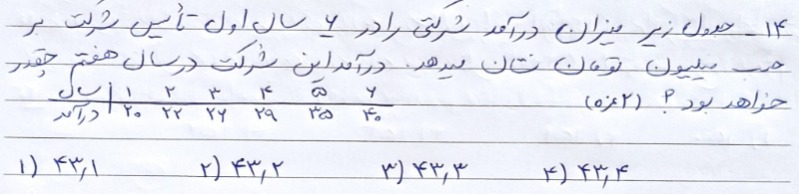 ۱۴- جدول زیر میزان درآمد شرکتی را در ۶ سال اول تأسیس شرکت بر
حسب میلیون تومان نشان میدهد. درآمد این شرکت در سال هفتم چقدر
خواهد بود؟ (۲ نمره)
سال | ۱ ۲ ۳ ۴ ۵ ۶
درآمد | ۲۰ ۲۲ ۲۶ ۲۹ ۳۵ ۴۰
۱) ۴۳,۱ ۲) ۴۳,۲ ۳) ۴۳,۳ ۴) ۴۳,۴